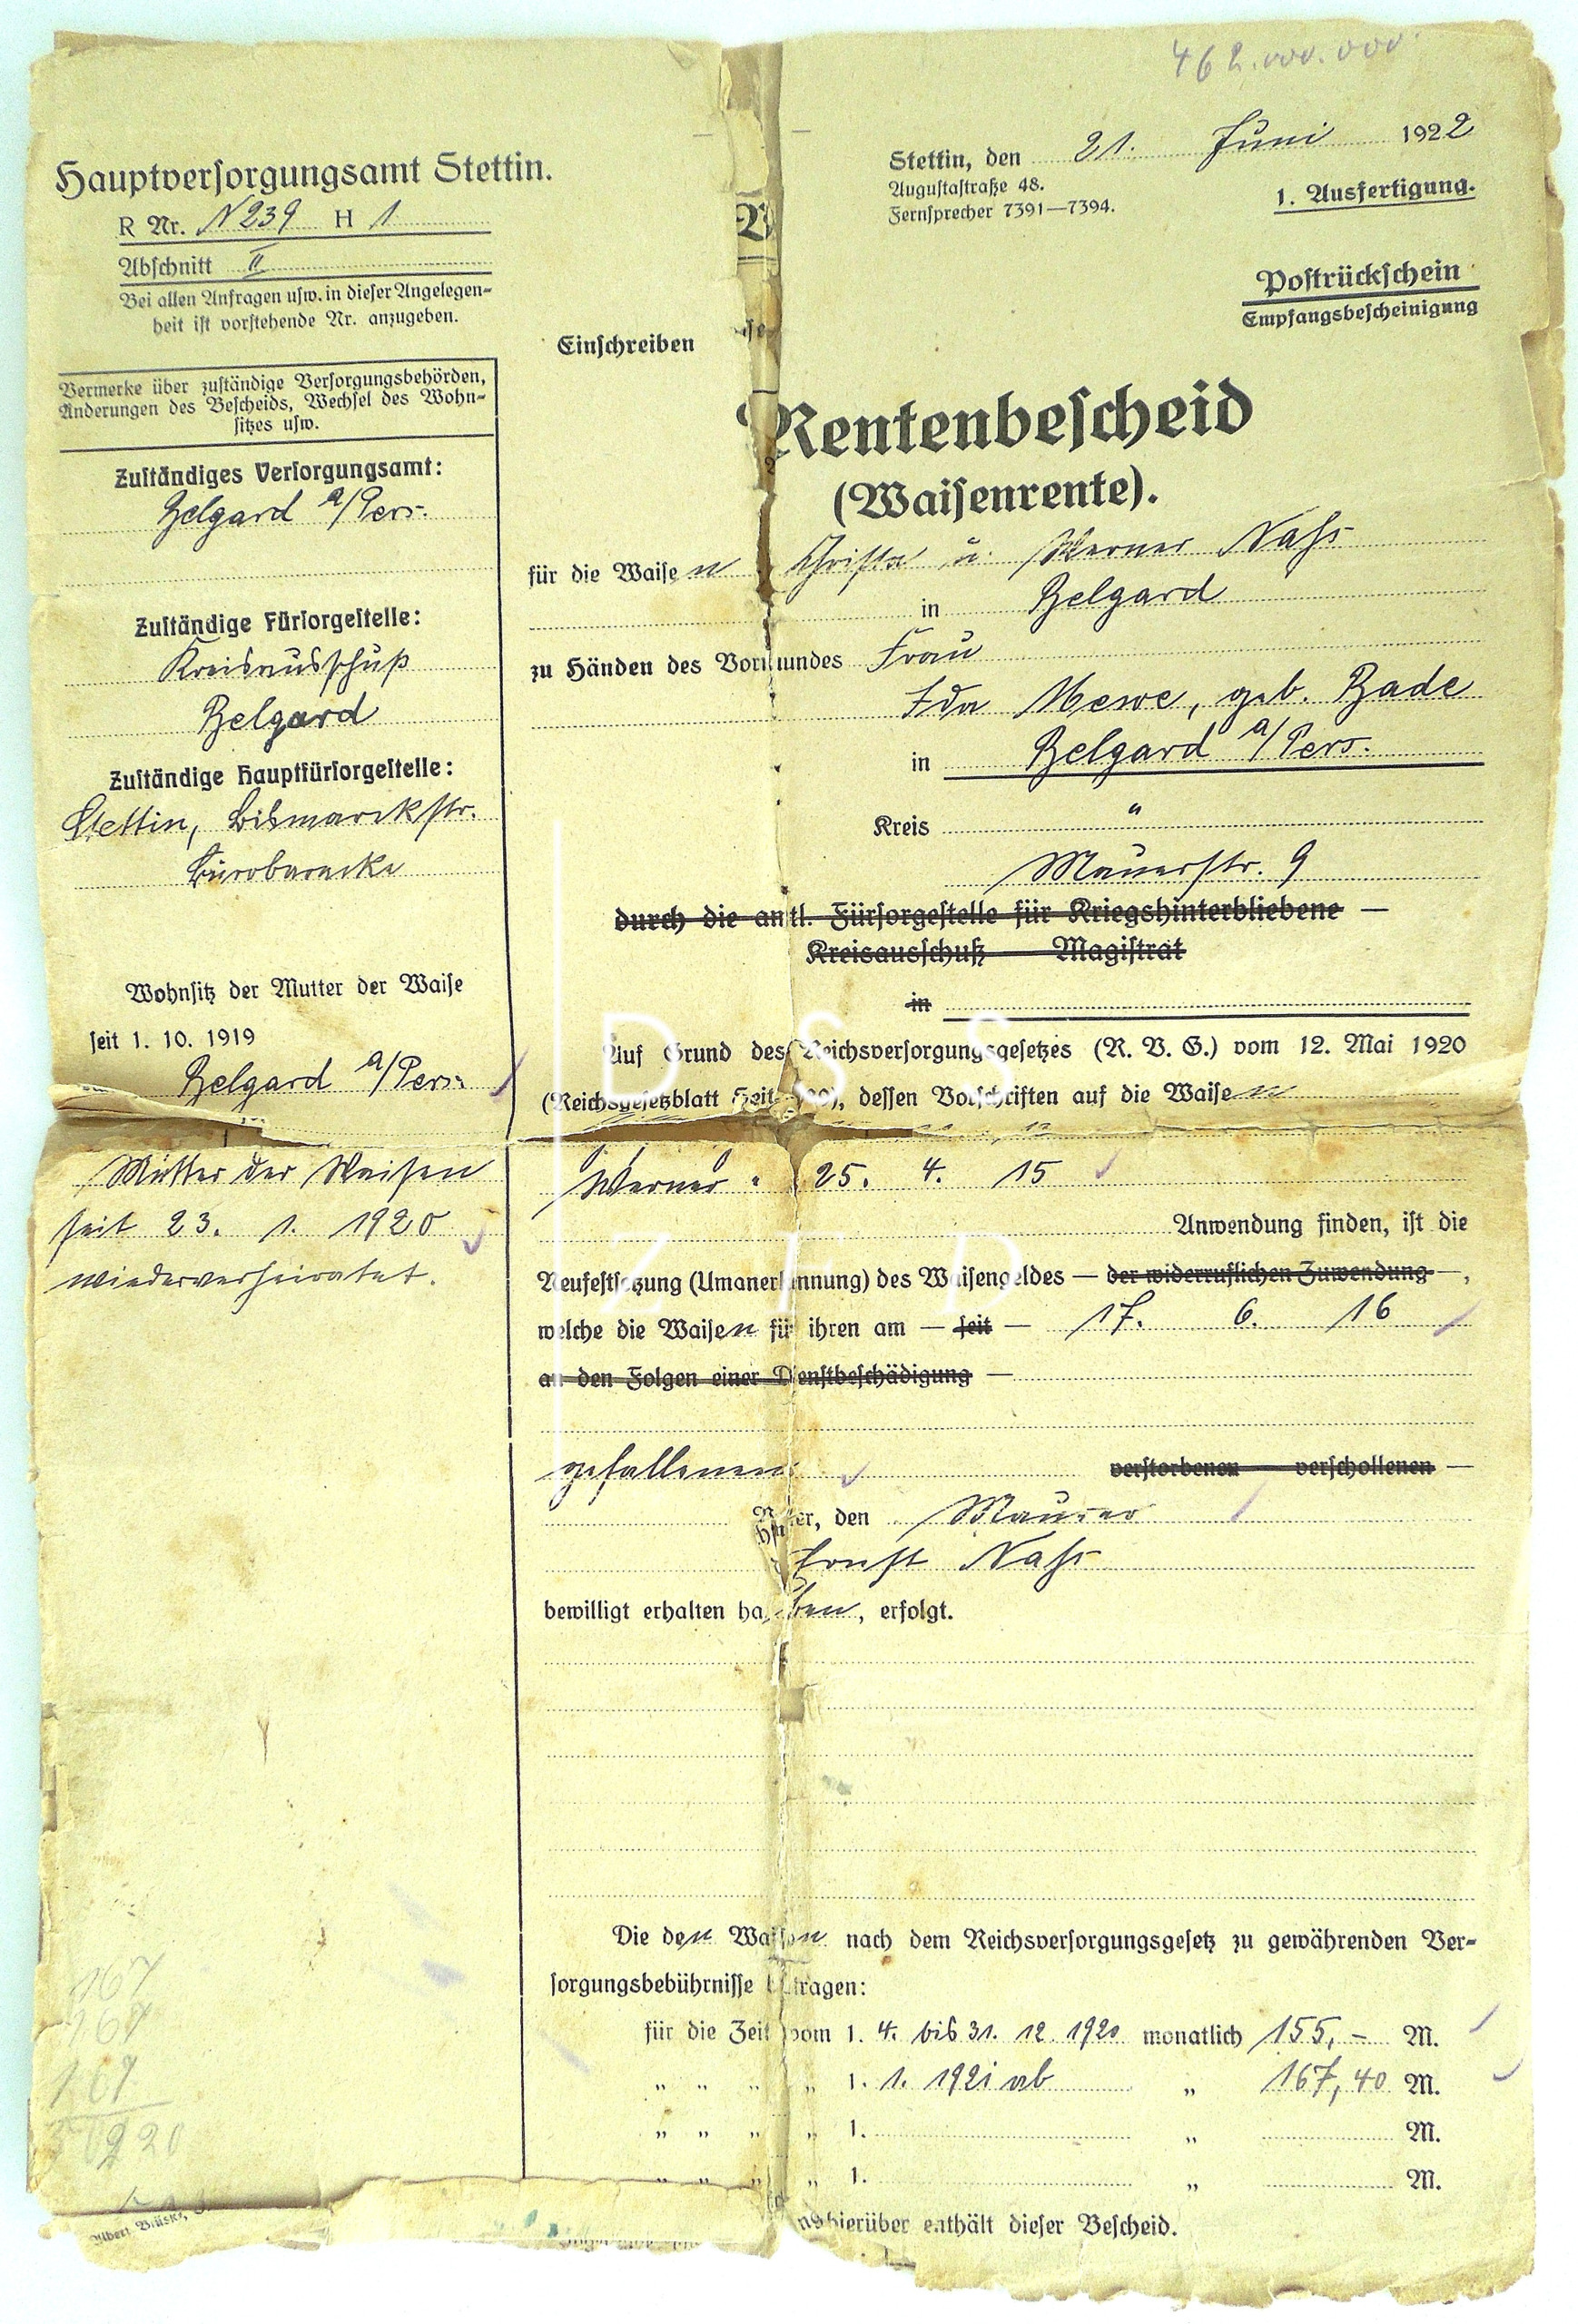 462.000.000.
Hauptversorgungsamt Stettin.
R Nr. N 239 H 1
Abschnitt II
Bei allen Anfragen usw. in dieser Angelegen-
heit ist vorstehende Nr. anzugeben.
Vermerke über zuständige Versorgungsbehörden,
Änderungen des Bescheids, Wechsel des Wohn-
sitzes usw.
Zuständiges Versorgungsamt:
Belgard a/Pers.
Zuständige Fürsorgestelle:
Kreisausschuß
Belgard
Zuständige Hauptfürsorgestelle:
Stettin, Bismarckstr.
Bürobaracke
Wohnsitz der Mutter der Waise
seit 1. 10. 1919
Belgard a/Pers.
Mutter der Waisen
seit 23. 1. 1920
wiederverheiratet.
167
167
167
Albert Brüske,
Stettin, den 21. Juni 1922
Augustastraße 48.
Fernsprecher 7391—7394.
1. Ausfertigung.
Postrückschein
Empfangsbescheinigung
Einschreiben
Rentenbescheid
(Waisenrente).
für die Waisen Christa u. Werner Nass
in Belgard
zu Händen des Vormundes Frau
Ida Mewe, geb. Bade
in Belgard a/Pers.
Kreis "
Mauerstr. 9
durch die amtl. Fürsorgestelle für Kriegshinterbliebene —
Kreisausschuß — Magistrat
in
Auf Grund des Reichsversorgungsgesetzes (R. V. G.) vom 12. Mai 1920
(Reichsgesetzblatt Seite dessen Vorschriften auf die Waisen
Werner " 25. 4. 15
Anwendung finden, ist die
Neufestsetzung (Umanerkennung) des Waisengeldes — der widerruflichen Zuwendung —,
welche die Waisen für ihren am — seit — 17. 6. 16
an den Folgen einer Dienstbeschädigung —
gefallenen verstorbenen — verschollenen —
den Maurer
Ernst Nass
bewilligt erhalten haben, erfolgt.
Die den Waisen nach dem Reichsversorgungsgesetz zu gewährenden Ver-
sorgungsbebührnisse betragen:
für die Zeit vom 1. 4. bis 31. 12. 1920 monatlich 155,– M.
" " " " 1. 1. 1921 ab " 167,40 M.
" " " " 1. " M.
" " " " 1. " M.
hierüber enthält dieser Bescheid.
D S S
Z F D